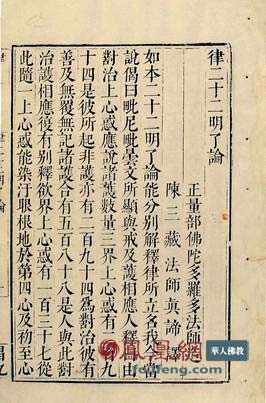 律二十二明了論
正量部佛陀多羅多法師造
陳三藏法師真諦譯
如本二十二明了論能分別解釋律所立名我今當
說偈曰毗尼毗曇文所顯與戒及護相應人釋曰
對治上心惑應說諸護數量三界上心惑有二百九
十四是彼所起非護亦有二百九十四為對治彼有
善及無覆無記諸護合有五百八十八是人與此對
治護相應復有別釋欲界上心惑有一百三十七從
此隨一上心惑能染污眼根地於第四心及初至心
鳳凰網
fo.ifeng.com
華人佛教